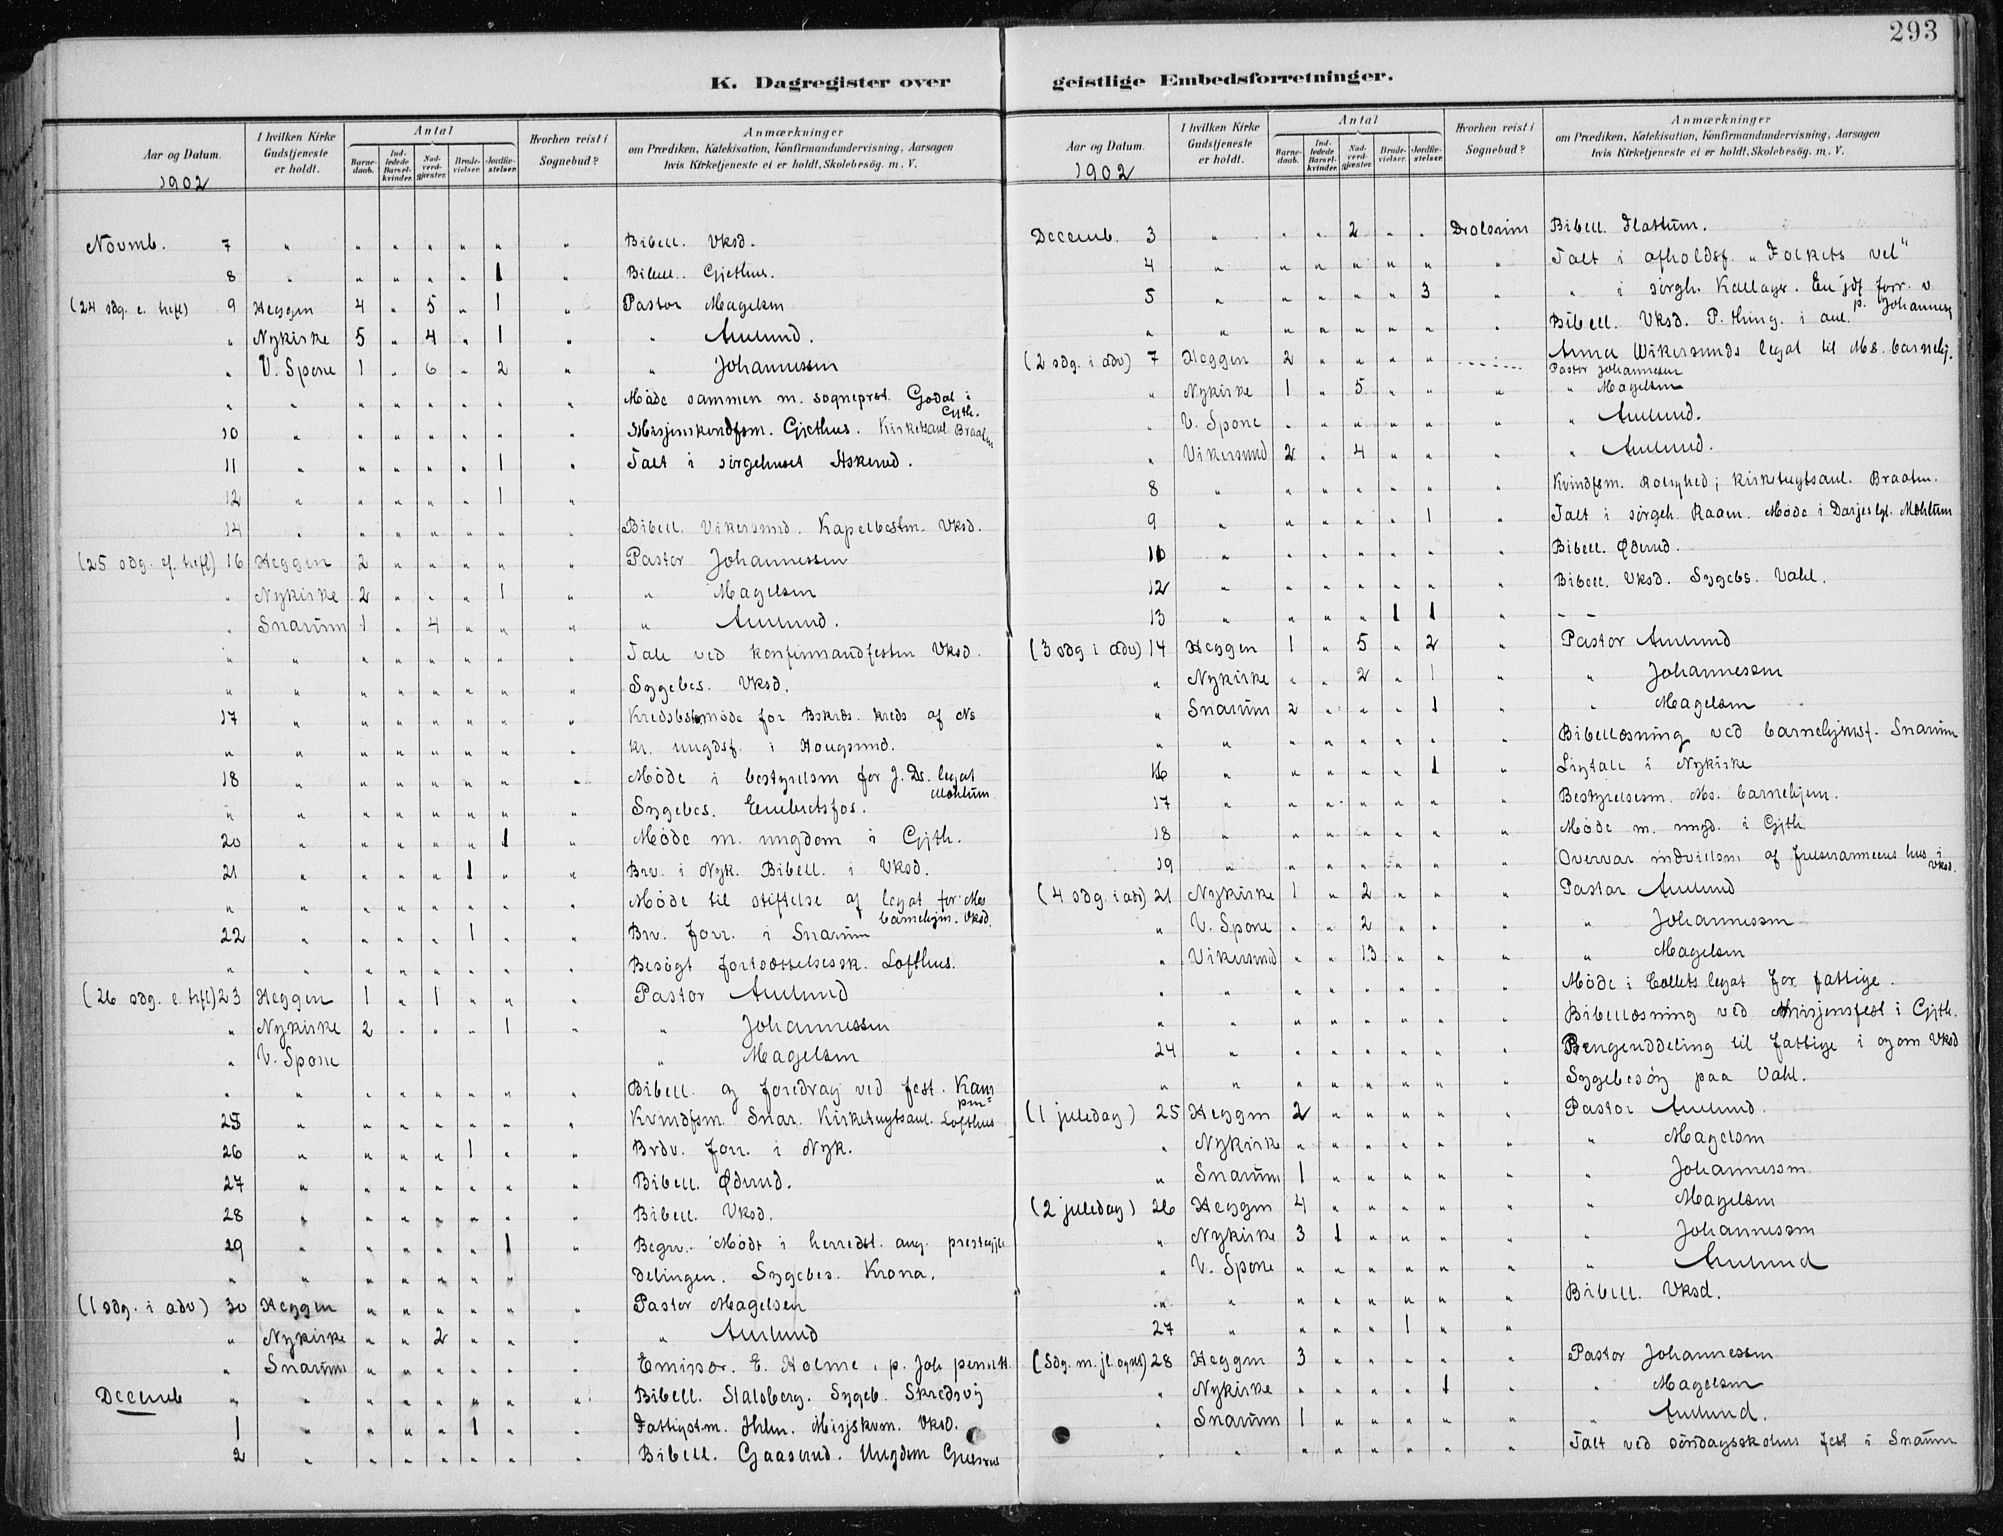 293
K. Dagregister over geistlige Embedsforretninger.
Aar og Datum. I hvilken Kirke Gudstjeneste er holdt. Antal Barnedaab. Indledede Barselkvinder. Nadverdgjæster. Brudevielser. Jordfæstelser. Hvorhen reist i Sognebud? Anmærkninger om Prædiken, Katekisation, Konfirmandundervisning, Aarsagen hvis Kirketjeneste ei er holdt, Skolebesøg. m. V.
1902
Novmb. 7 " " " " " " " Bibell. Vksd.
8 " " " " " 1 " Bibell. Gjethus.
(24 sdg. e. trefl) 9 Heggen 4 " 5 " 1 " Pastor Magelsen
" Nykirke 5 " 4 " 1 " " Aulund.
" V. Spone 1 " 6 " 2 " " Johannessen
" " " " " " " " Møde sammen m. sogneprst. Godal i Gjth.
10 " " " " " " " Misjonskvindfsm. Gjethus. Kirketaul Braaten
11 " " " " " 1 " Talt i sørgehuset Askerud.
12 " " " " " 1 "
14 " " " " " " " Bibell. Vikersund. Kapelbestm. Vksd.
(25 sdg. ef. trefl) 16 Heggen 2 " " " " " Pastor Johannessen
" Nykirke 2 " " " 1 " " Magelsen
" Snarum 1 " 4 " " " " Aulund.
" " " " " " " " Tale ved konfirmandfesten Vksd.
" " " " " " " " Sygebes. Vksd.
17 " " " " " " " Kredsbstmøde for Bskrds. kreds af Ns
" " " " " " " " kr. ungdsf. i Hougsund.
18 " " " " " " " Møde i bestyrelsen for J. Ds. legat Mohlum
" " " " " " " " Sygebes. Embretsfos.
20 " " " " " 1 " Møde m. ungdom i Gjth.
21 " " " " 1 " " Brv. i Nyk. Bibell. i Vksd.
" " " " " " " " Møde til stiftelse af legat for Ms barnehjm. Vksd.
22 " " " " 1 " " Brv. forr. i Snarum
" " " " " " " " Besøgt fortsættelsessk. Lofthus.
(26 sdg. e. trefl) 23 Heggen 1 " 1 " " " Pastor Aulund
" Nykirke 2 " " " 1 " " Johannessen
" V. Spone " Magelsen
" " " " " " " " Bibell. og foredrag ved fest. Kampen=
25 " " " " " " " Kvindfsm. Snar. Kirketugtsaul. Lofthus
26 " " " " 1 " " Brdv. forr. i Nyk.
27 " " " " " " " Bibell. Øderud.
28 " " " " " " " Bibell. Vksd.
29 " " " " " 1 " Begrv. Mødt i herredst. ang. prestegjb
" " " " " " " " delingen. Sygebes. Krona.
(1 sdg. i adv) 30 Heggen " " " " " " Pastor Magelsen
" Nykirke " " 2 " " " " Aulund
" Snarum " " " " " " Emissær. E. Holme, p. Joh permitt.
Decemb " " " " " " " " Bibell. Stalsberg. Sygeb. Skredsvig
1 " " " " 1 " " Fattigst.m. Ihlen. Misjskvm. Vksd.
2 " " " " " " " Bibell. Gaaserud. Ungdem
Aar og Datum. I hvilken Kirke Gudstjeneste er holdt. Antal Barnedaab. Indledede Barselkvinder. Nadverdgjæster. Brudevielser. Jordfæstelser. Hvorhen reist i Sognebud? Anmærkninger om Prædiken, Katekisation, Konfirmandundervisning, Aarsagen hvis Kirketjeneste ei er holdt, Skolebesøg. m. V.
1902
Decemb. 3 " " " 2 " " Drolsrim Bibell. Flattum.
4 " " " " " " " Talt i afholdsf. "Folkets vel"
5 " " " " " 3 " " i sørgh. Kallager. En jdf forr. v p. Johannes
" " " " " " " " Bibell. Vksd. P. thing. i aul.
(2 sdg. i adv) 7 Heggen 2 " " " " Anna Wikersunds legat til Ms. barnehj.
Pastor Johannessen
" Nykirke 1 " 5 " " " " Magelsen
" V. Spone " " " " " " " Aulund.
" Vikersund 2 " 4 " " " " Aulund.
8 " " " " " " " Kvindfsm. Rolighed; kirketugtsaul. Braaten.
9 " " " " " 1 " Talt i sørgeh. Raaen. Møde i Darjes lgt. Mohlum
10 " " " " " " " Bibell. Øderud.
12 " " " " " " " Bibell. Vksd. Sygebs. Vahl.
13 " " " " 1 1 " – –
(3 sdg i adv) 14 Heggen 1 " 5 " 2 " Pastor Aulund
" Nykirke " " 2 " 1 " " Johannessen
" Snarum 2 " " " 1 " " Magelsen
" " " " " " " " Bibellæsning ved barnehjmsf. Snarum
16 " " " " " 1 " Ligtale i Nykirke
17 " " " " " " " Bestyrelsesm. Ms. barnehjem.
18 " " " " " " " Møde m. ungd. i Gjth
19 " " " " " " " Overvar indvielsen af frelsrarmeens hus i Vksd.
(4 sdg. i adv) 21 Nykirke 1 " 2 " " " Pastor Aulund
" V. Spone " " 2 " " " " Johannessen
" Vikersund " " 13 " " " " Magelsen
" " " " " " " " Møde i Collets legat for fattige.
" " " " " " " " Bibellæsning ved Misjonsfest i Gjth.
24 " " " " " " " Pengeuddeling til fattige i og om Vksd
" " " " " " " " Sygebesøg paa Vahl.
(1 juledag) 25 Heggen 2 " " " " " Pastor Aulund.
" Nykirke " " " " " " " Magelsen
" Snarum 1 " " " " " " Johannessen
(2 juledag) 26 Heggen 4 " " " " " " Magelsen
" Nykirke 3 1 " " " " " Johannessen
" V. Spone " " " " " " " Aulund
" " " " " " " " Bibell. Vksd.
27 " " " " 1 " "
(Sdg. m. jl. og nyt) 28 Heggen 3 " " " " " Pastor Johannessen
" Nykirke " " " " 1 " " Magelsen
" Snarum 1 " " " " " " Aulund.
" " " " " " " " Talt ved søndagsskolens fest i Snarum